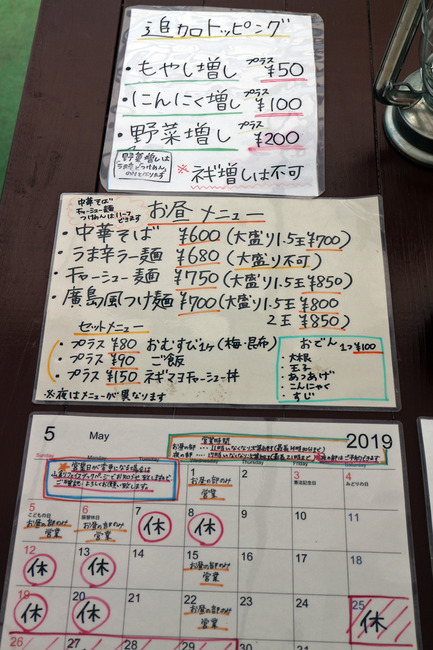 追加トッピング
・もやし増し プラス ¥50
・にんにく増し プラス ¥100
・野菜増し プラス ¥200
野菜増しは
※ネギ増しは不可
中華そば
チャーシュー麺
お昼メニュー
・中華そば ¥600(大盛り1.5玉¥700)
・うま辛ラー麺 ¥680(大盛り不可)
・チャーシュー麺 ¥750(大盛り1.5玉¥850)
・廣島風つけ麺 ¥700(大盛り1.5玉¥800
2玉¥850)
セットメニュー
・プラス¥80 おむすび1ヶ(梅・昆布)
・プラス¥90 ご飯
・プラス¥150 ネギマヨチャーシュー丼
※夜はメニューが異なります
おでん 1つ¥100
・大根
・玉子
・あつあげ
・こんにゃく
・すじ
5 May 2019
営業時間
Sunday Monday Tuesday Wednesday Thursday Friday Saturday
1 2 3 4
お昼の部のみ
営業
憲法記念日 みどりの日
5 6 7 8 9 10 11
こどもの日 振替休日
お昼の部のみ
営業
お昼の部のみ
営業
休 休
12 13 14 15 16 17 18
休 休
お昼の部のみ
営業
19 20 21 22 23 24 25
休 休
お昼の部のみ
営業
休
26 27 28 29 30 31